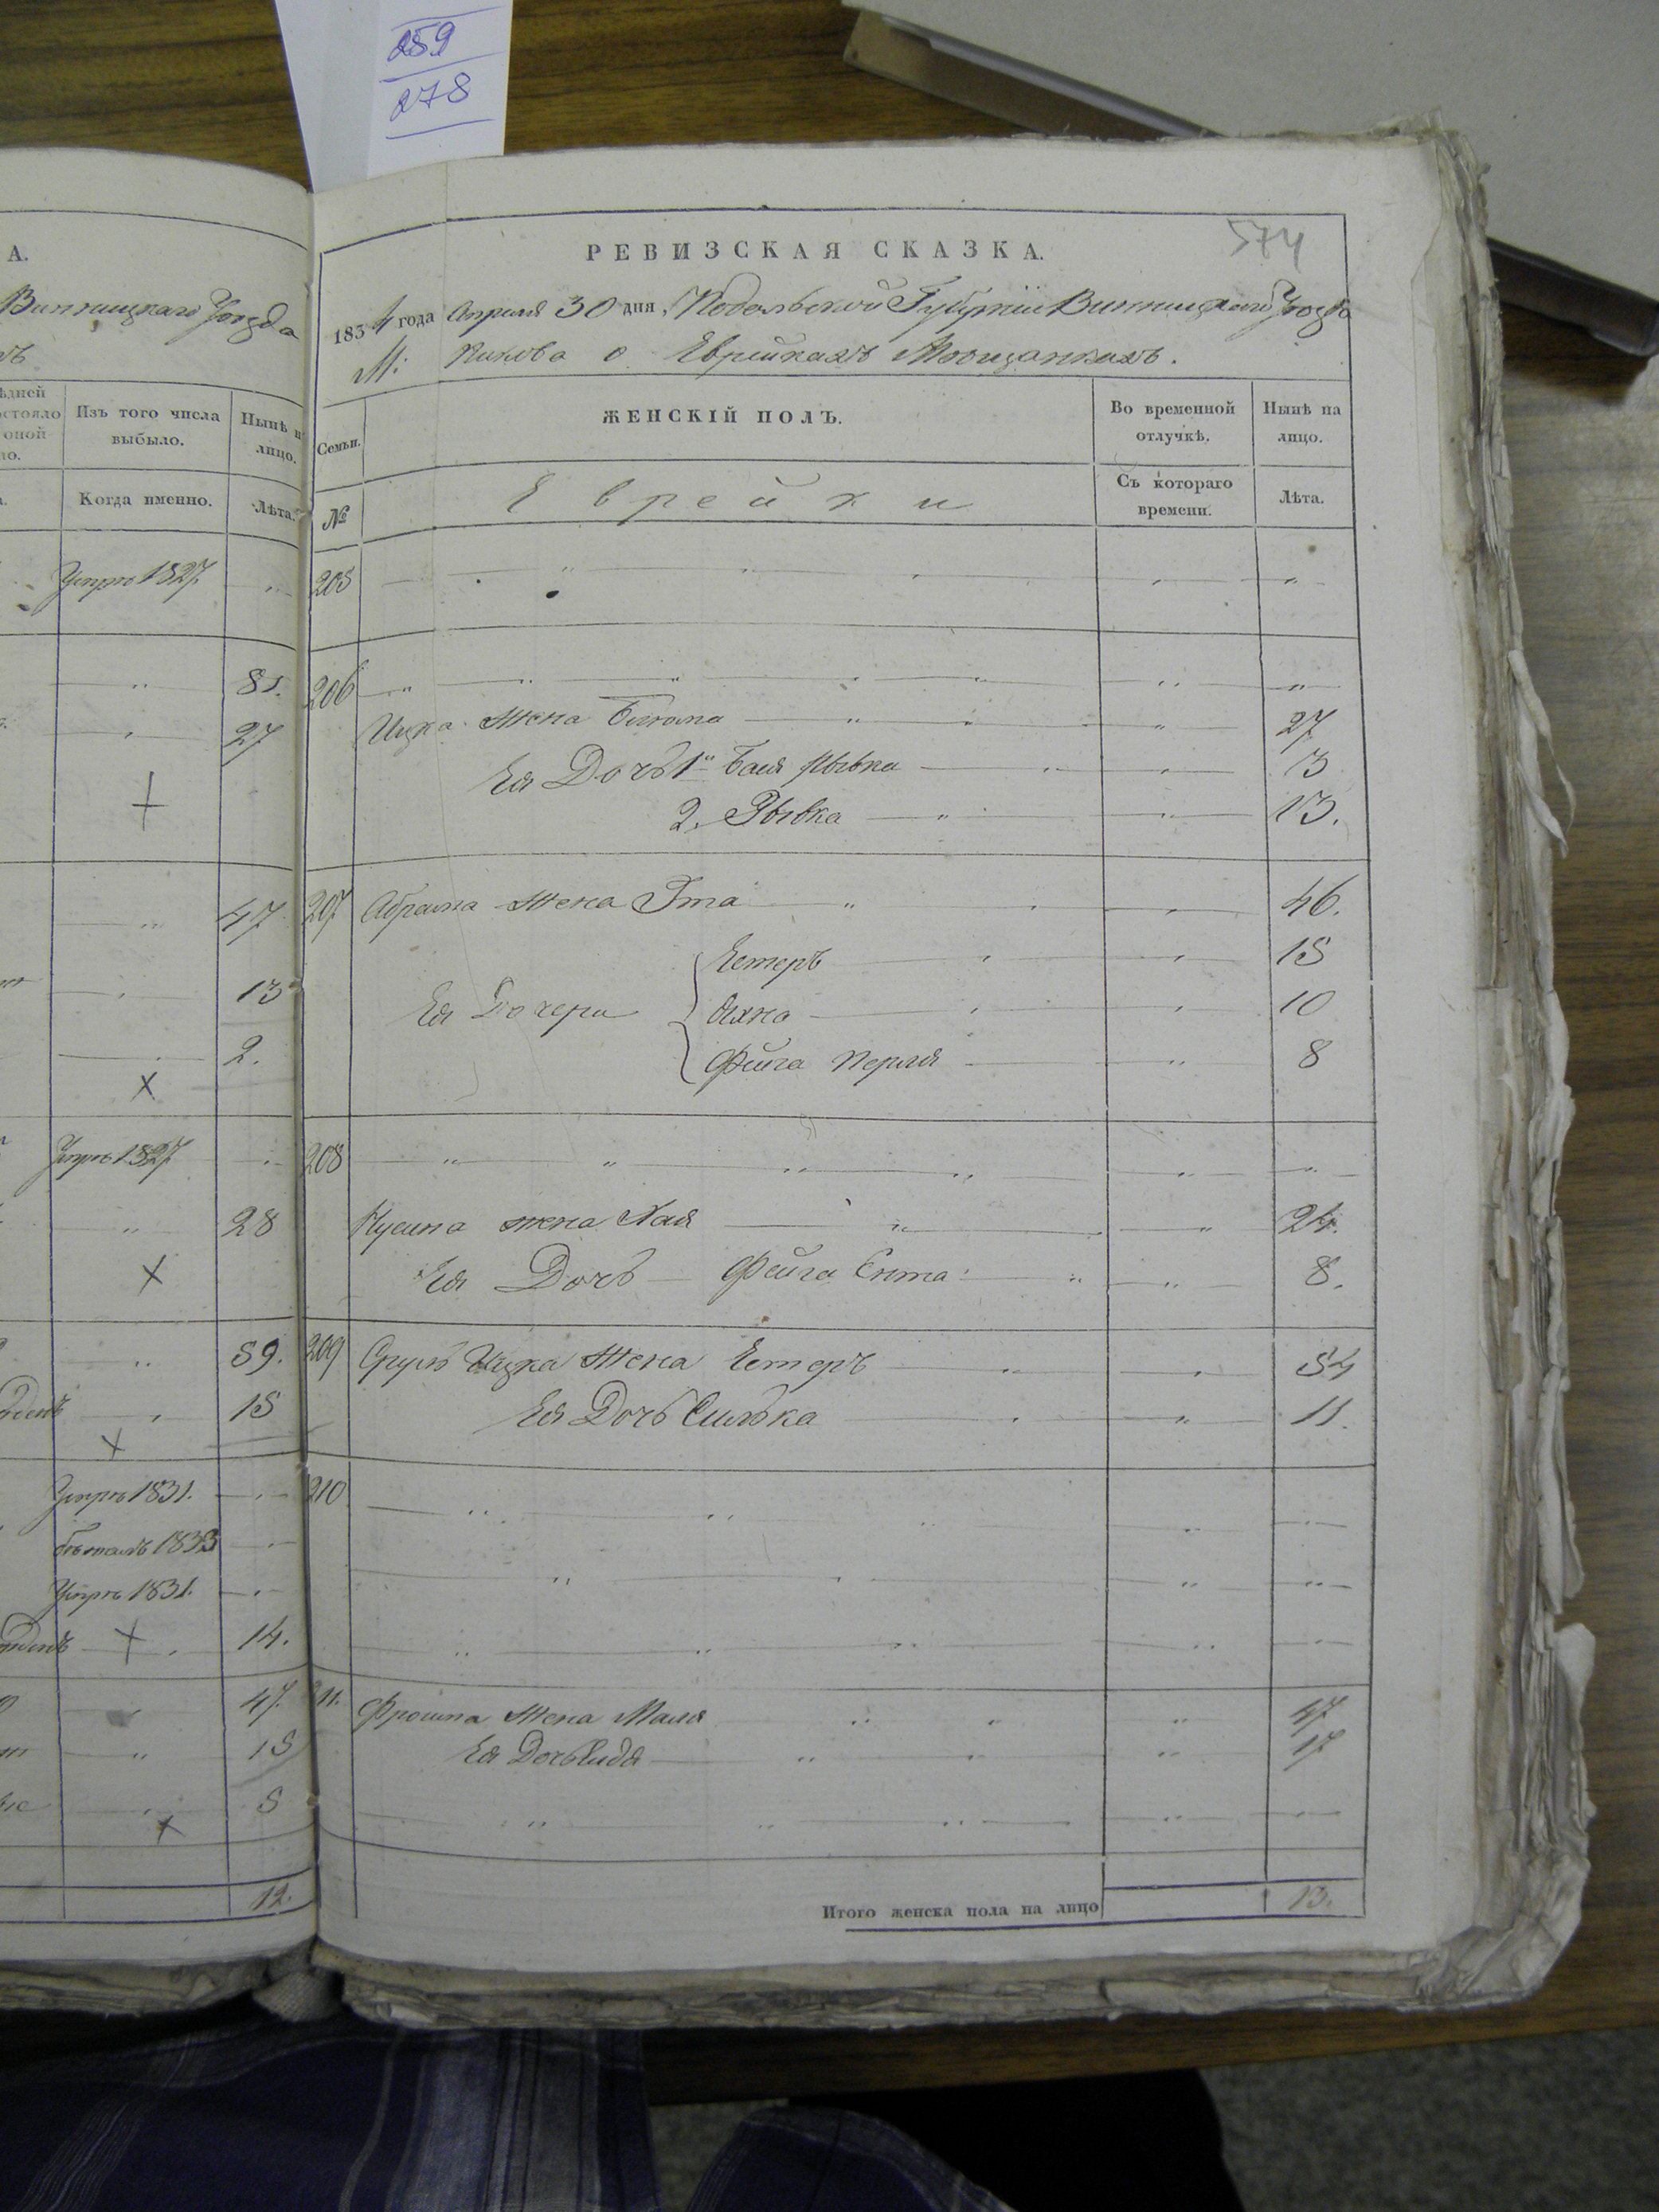 259
278
А.
Винницкаго Уезда
Изъ того числа
выбыло.
Ныне н
лицо.
Когда именно.
Лѣта.
Умре 1827.
81.
27
47
13
2.
Умре 1827
28
59.
15
Умре 1831.
Бежалъ 1833
Умре 1831.
14.
47.
15
5
12.
574
РЕВИЗСКАЯ СКАЗКА.
1834 года Апреля 30 дня, Подольской Губернiи Винницкаго Уезда
М: Пикова о Еврейкахъ Мещанкахъ.
Семьи.
ЖЕНСКІЙ ПОЛЪ.
Во временной
отлучкѣ.
Нынѣ на
лицо.
№
Еврейки
Съ котораго
времени.
Лѣта.
205
206
Ицка жена 27
Ея Дочь 1я Бася Рывка 13
2. Рывка 13.
207 Абрама жена Гта 46.
Естеръ 15
Ея Дочери Хана 10
Фейга Перля 8
208
Нусина жена Хая 24.
Ея Дочь Фейга Ента 8.
209 Сруль Ицка жена Естеръ 54
Ея Дочь Силька 11.
210
211. Фроима жена Маля 47
Ея Дочь 17
Итого женска пола на лицо 13.